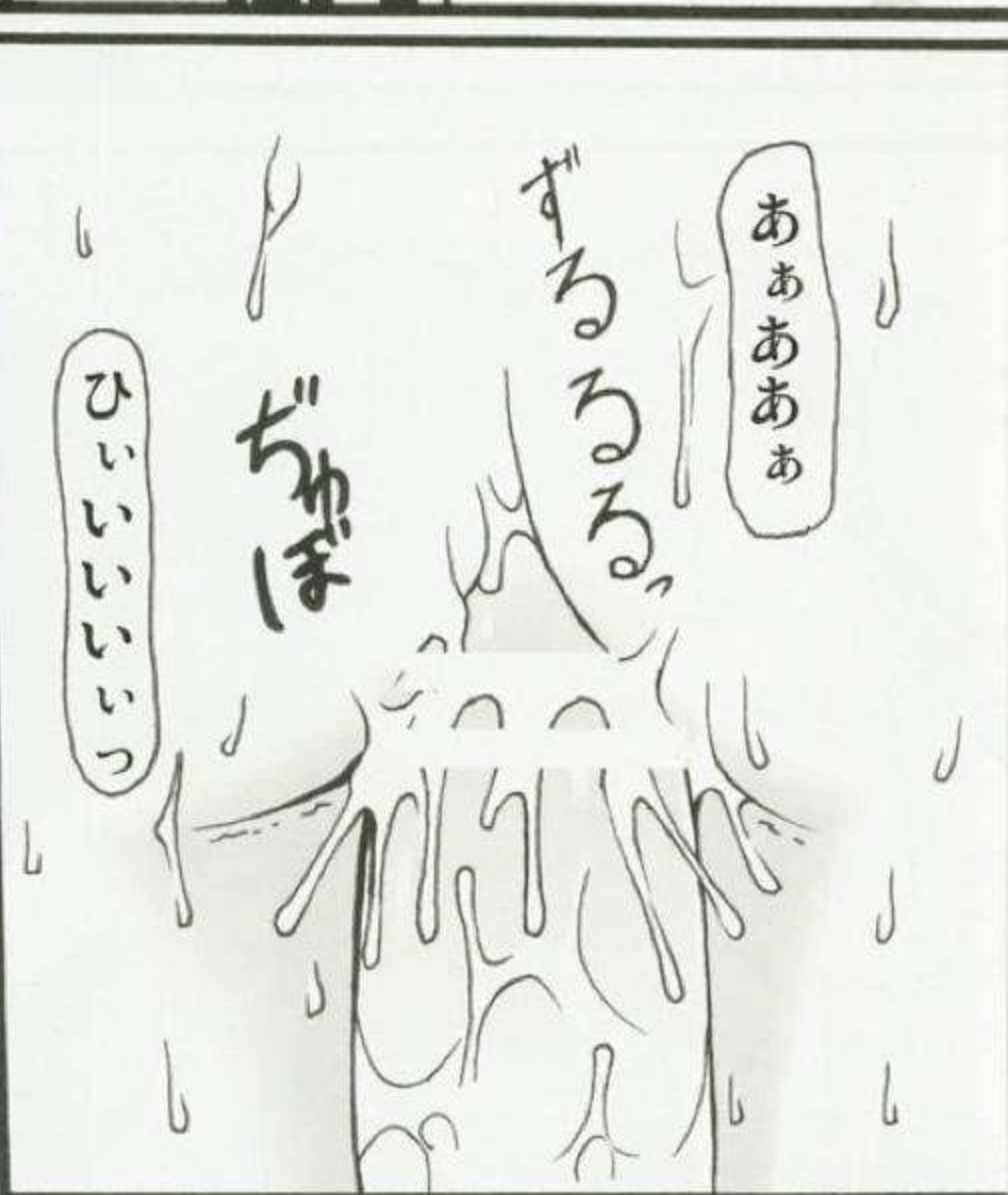 あぁああぁ
ずるるるっ
ぢゅぼ
ひぃいいいぃっ